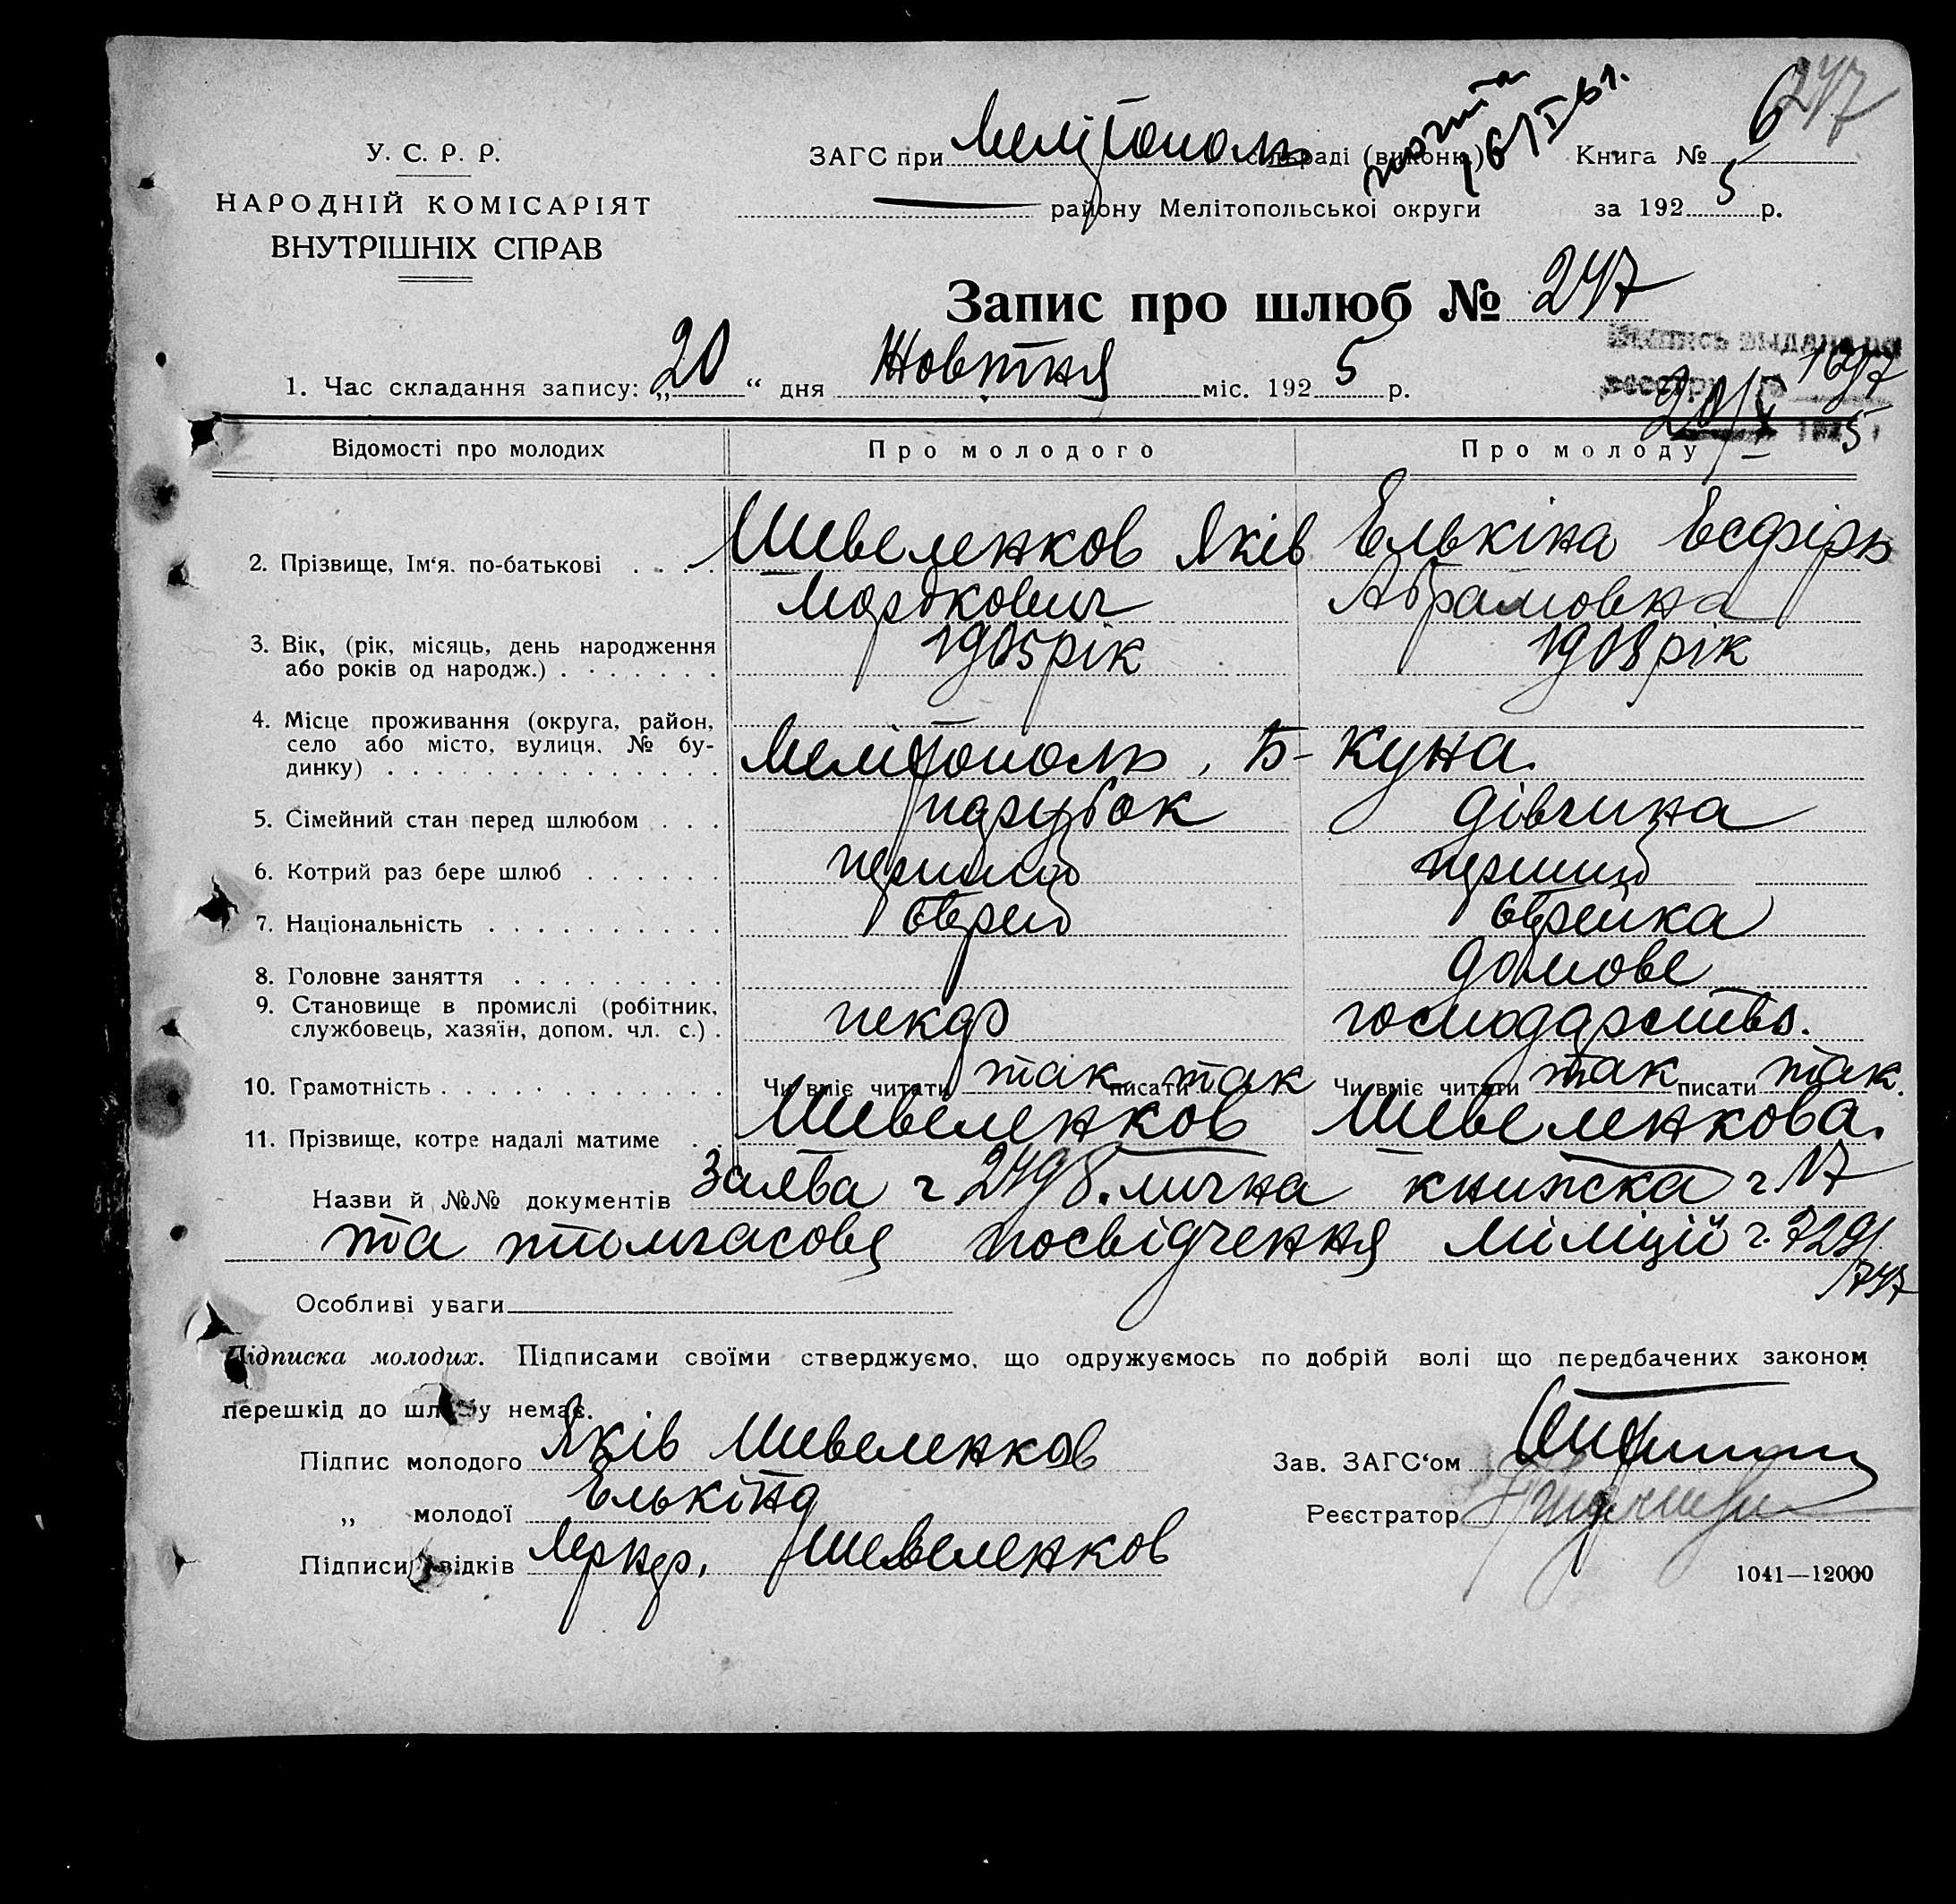 247
У. С. Р. Р.
НАРОДНІЙ КОМІСАРІЯТ
ВНУТРІШНІХ СПРАВ
ЗАГС при Мелітополь раді (виконк.) Книга № 6
району Мелітопольської округи за 1925 р.
Запис про шлюб № 247
1. Час складання запису: „20“ дня Жовтня міс. 1925 р.
Выпись выдана по
реестру 1697
20/X 1925
Відомості про молодих Про молодого Про молоду
2. Прізвище, Ім‘я. по-батькові Шевеленков Яків Елькіна Есфірь
Мордкович Абрамовна
3. Вік, (рік, місяць, день народження
або років од народж.) 1905 рік 1908 рік
4. Місце проживання (округа, район,
село або місто, вулиця, № бу-
динку) Мелітополь, Б-Куна.
5. Сімейний стан перед шлюбом парубок дівчина
6. Котрий раз бере шлюб перший перший
7. Національність єврей єврейка
8. Головне заняття домове
9. Становище в промислі (робітник,
службовець, хазяїн, допом. чл. с.) пекар господарство.
10. Грамотність Чи вміє читати так писати так Чи вміє читати так писати так.
11. Прізвище, котре надалі матиме Шевеленков Шевеленкова.
Назви й №№ документів Заява ч 2498. лична книжка ч 17
та тимчасове посвідчення міліції ч. 7291
/747
Особливі уваги
Підписка молодих. Підписами своїми стверджуємо, що одружуємось по добрій волі що передбачених законом
перешкід до шлюбу немає.
Підпис молодого Яків Шевеленков Зав. ЗАГС‘ом
„ молодої Елькіна Реєстратор
Підписи свідків Шевеленков
1041—12000